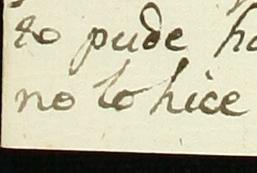 to pude ha
no lo hice